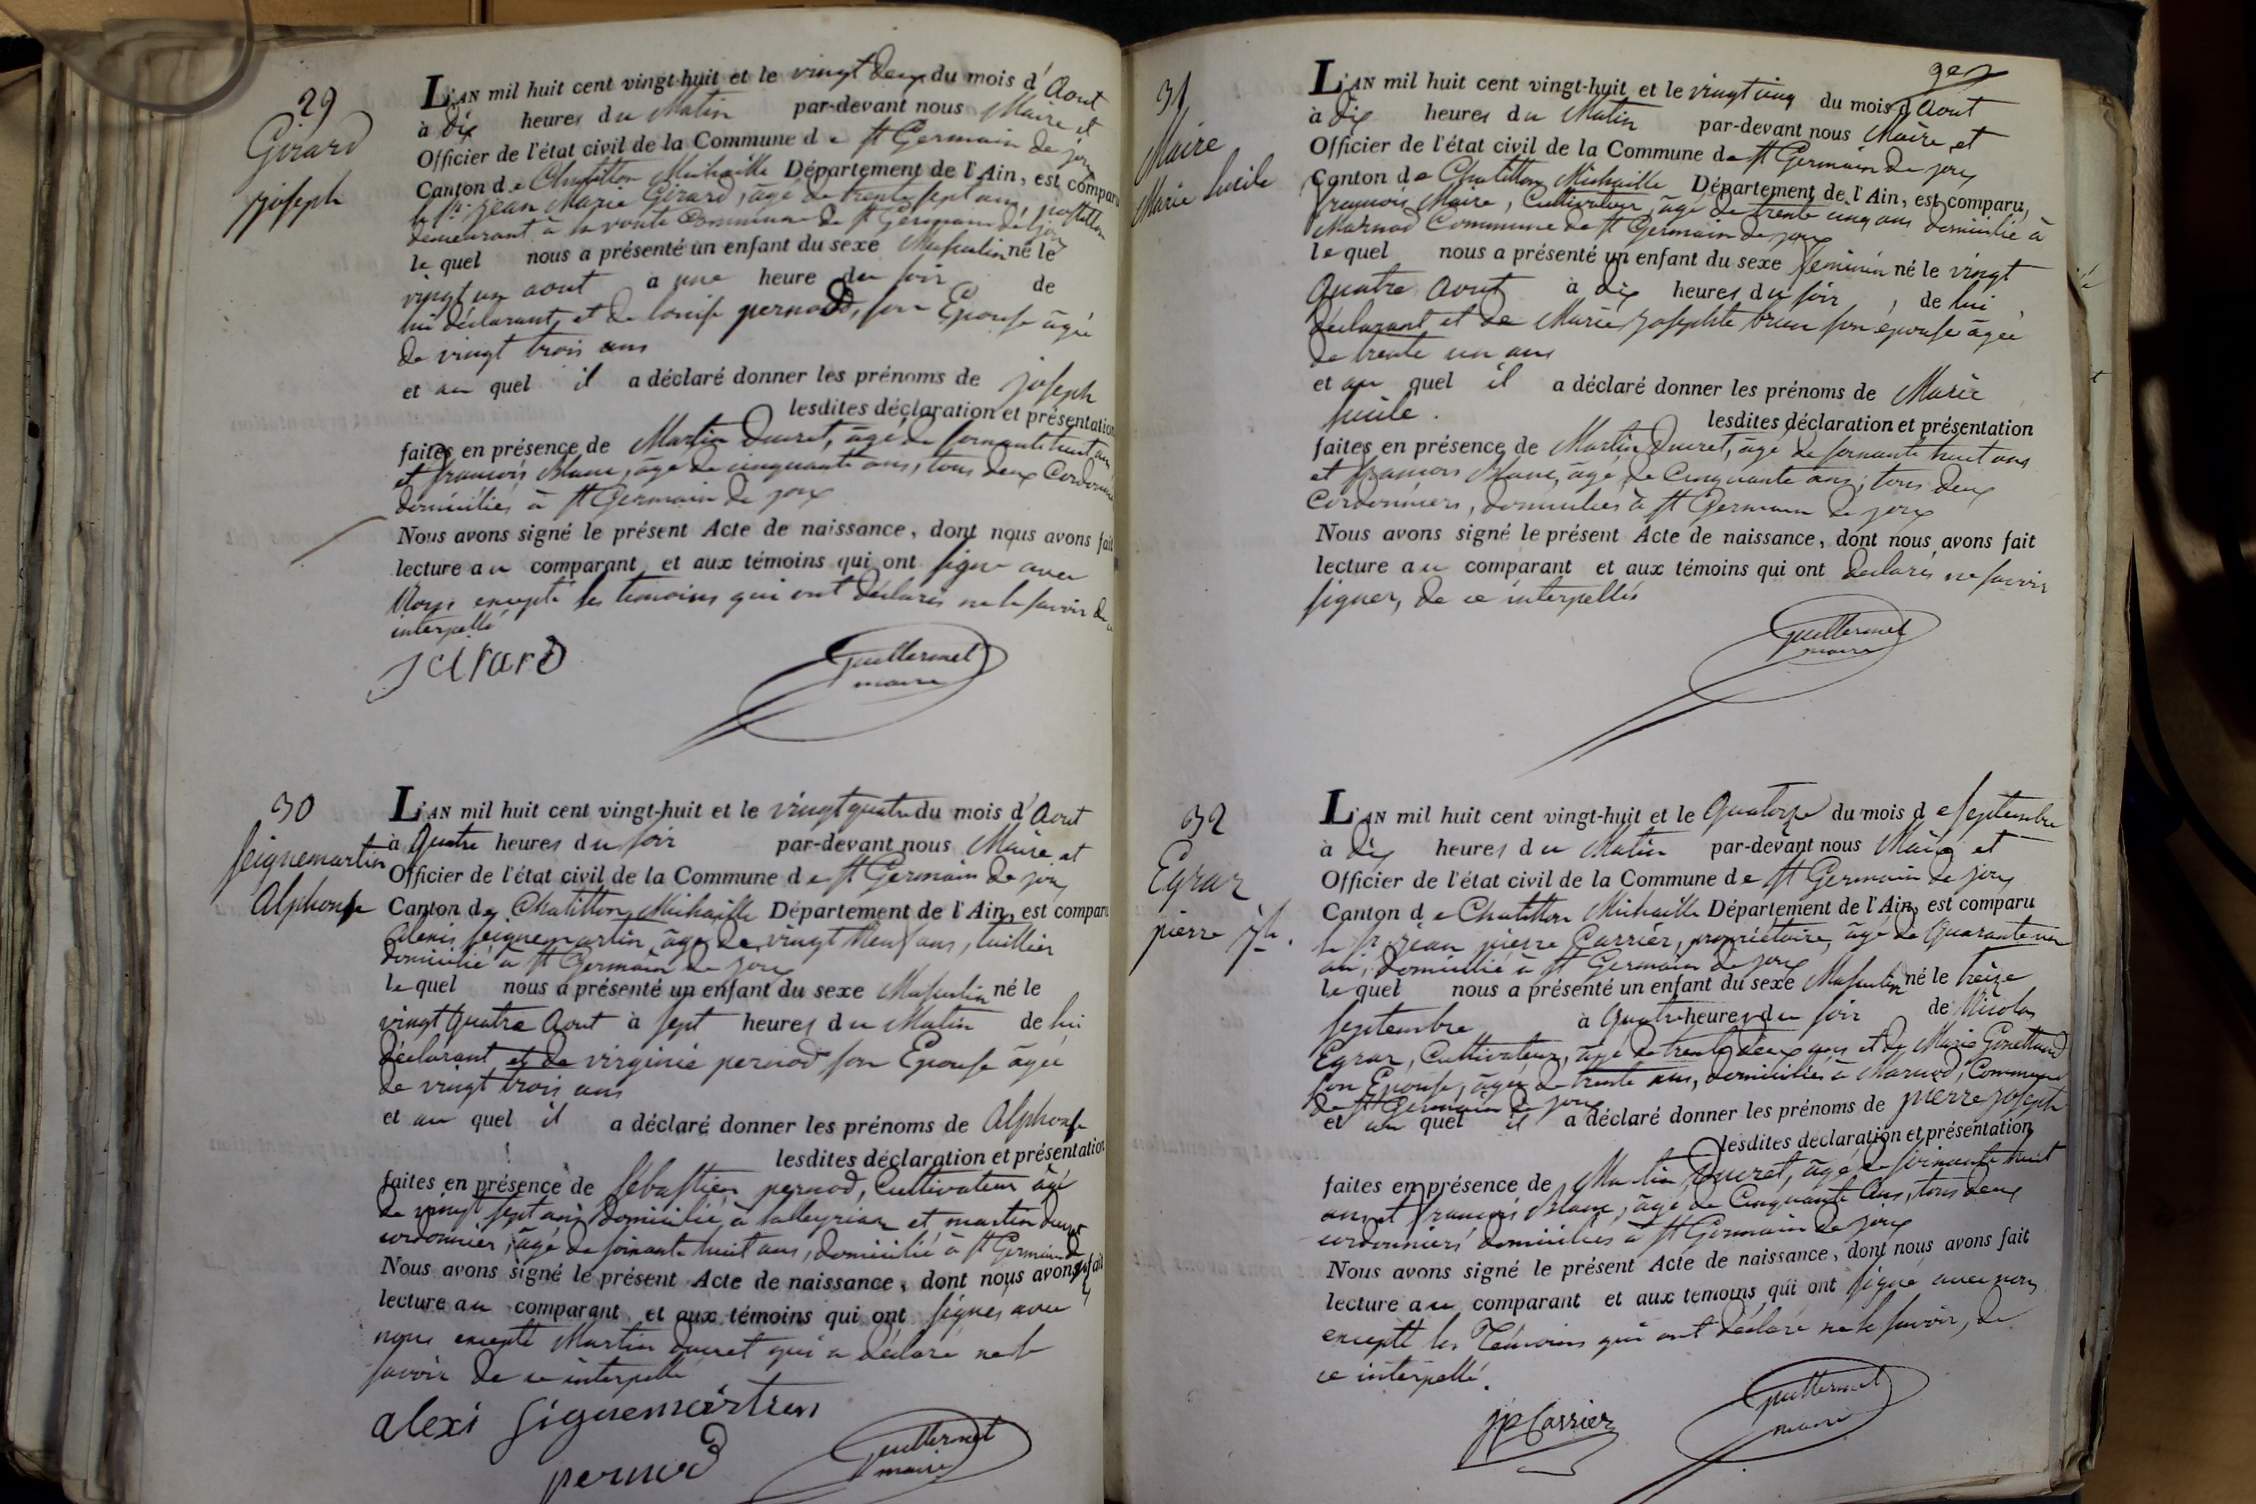 29
Girard
joseph
L'AN mil huit cent vingt-huit et le vingt deux du mois d'Aout
à Dix heures du Matin par-devant nous Maire et
Officier de l'état civil de la Commune de St Germain de joux
Canton de Chatillon Michaille Département de l'Ain, est comparu
le sr jean Marie Girard, âgé de trente sept ans, postillon
demeurant à la voute Commune de St Germain de joux
lequel nous a présenté un enfant du sexe Masculin né le
vingt un aout à une heure du soir de
lui déclarant, et de Louise pernod, son Epouse âgée
de vingt trois ans
et au quel il a déclaré donner les prénoms de joseph
lesdites déclaration et présentation
faites en présence de Martin Ducret, âgé de soixante huit ans
et françois Blanc, âgé de cinquante ans, tous deux Cordonniers
domiciliés à St Germain de joux
Nous avons signé le présent Acte de naissance, dont nous avons fait
lecture au comparant et aux témoins qui ont signé avec
Nous excepté les temoins qui ont déclarés ne le savoir de ce
interpellé
Guillermet
maire
30
Seignemartin
Alphonse
L'AN mil huit cent vingt-huit et le vingt quatre du mois d'Aout
à Quatre heures du soir par-devant nous Maire et
Officier de l'état civil de la Commune de St Germain de joux
Canton de Chatillon Michaille Département de l'Ain, est comparu
Alexis Seignemartin, âgé de vingt Neuf ans, taillier
domicilié à St Germain de joux
lequel nous a présenté un enfant du sexe Masculin né le
vingt Quatre Aout à sept heures du Matin de lui
déclarant et de virginie pernod son Epouse âgée
de vingt trois ans
et au quel il a déclaré donner les prénoms de Alphonse
lesdites déclaration et présentation
faites en présence de Sébastien pernod, Cultivateur âgé
de vingt sept ans domicilié à et martin ducret
cordonnier, âgé de soixante huit ans, domicilié à St Germain de joux
Nous avons signé le présent Acte de naissance, dont nous avons fait
lecture au comparant et aux témoins qui ont signés avec
nous excepté Martin ducret qui a déclaré ne le
savoir de ce interpellé
alexi signemartin
pernod
Guillermet
maire
31
Maire
Marie Lucile
L'AN mil huit cent vingt-huit et le vingt cinq du mois d'Aout
à Dix heures du Matin par-devant nous Maire et
Officier de l'état civil de la Commune de St Germain de joux
Canton de Chatillon Michaille Département de l'Ain, est comparu,
françois Maire, Cultivateur, âgé de trente cinq ans domicilié à
Marnod Commune de St Germain de joux
lequel nous a présenté un enfant du sexe féminin né le vingt
Quatre Aout à dix heures du soir, de lui
déclarant et de Marie Josephte brun son épouse âgée
de trente un ans
et au quel il a déclaré donner les prénoms de Marie
Lucile.
lesdites déclaration et présentation
faites en présence de Martin Ducret, âgé de soixante huit ans
et françois Blanc, âgé de Cinquante ans, tous deux
Cordonniers, domiciliés à St Germain de joux
Nous avons signé le présent Acte de naissance, dont nous avons fait
lecture au comparant et aux témoins qui ont déclarés ne savoir
signer, de ce interpellés
Guillermet
maire
32
Egraz
pierre jh.
L'AN mil huit cent vingt-huit et le Quatorze du mois de septembre
à dix heures du Matin par-devant nous Maire et
Officier de l'état civil de la Commune de St Germain de joux
Canton de Chatillon Michaille Département de l'Ain, est comparu
le sr jean pierre Carrier, propriétaire, âgé de Quarante un
ans, domicilié à St Germain de joux
lequel nous a présenté un enfant du sexe Masculin né le treize
septembre à Quatre heures du soir de Nicolas
Egraz, Cultivateur, âgé de trente deux ans et de Marie
son Epouse, âgée de trente ans, domiciliés à Marnod, Commune
de St Germain de joux
et au quel il a déclaré donner les prénoms de pierre joseph
lesdites déclaration et présentation
faites en présence de Martin Ducret, âgé de soixante huit
ans et françois Blanc, âgé de Cinquante ans, tous deux
cordonniers domiciliés à St Germain de joux
Nous avons signé le présent Acte de naissance, dont nous avons fait
lecture au comparant et aux témoins qui ont signé avec nous
excepté les Témoins qui ont déclaré ne le savoir, de
ce interpellé.
jp Carrier
Guillermet
maire